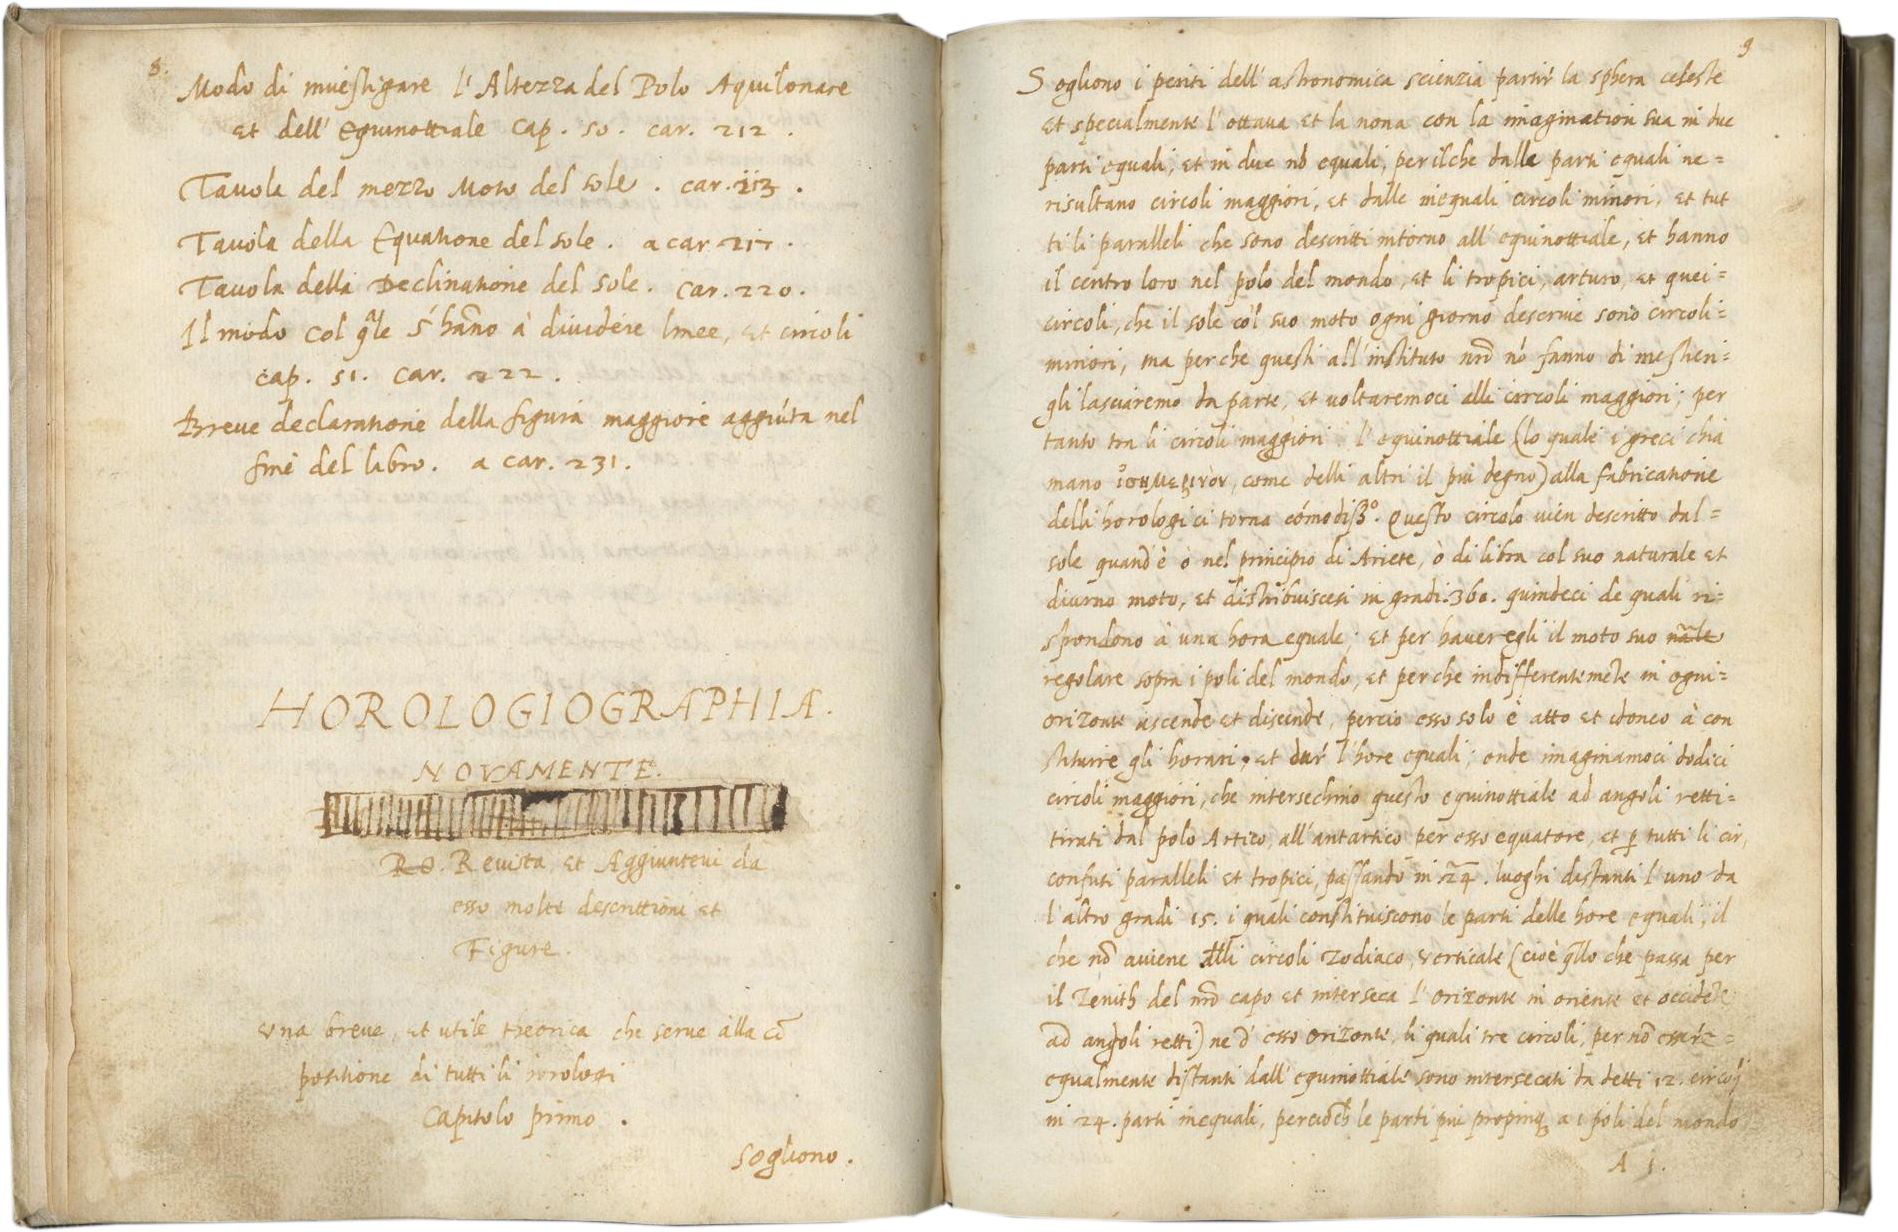 8.
Modo di inuestigare l'Altezza del Polo Aquilonare
et dell' Equinottiale cap. 50. car. 212.
Tavola del mezzo Moto del sole. car.
Tavola della Equatione del sole. a car
Tavola della Declinatione del sole. car. 220.
Il modo col q̃le s' hãno à diuidere linee, et circoli
cap. 51. car. 222.
Breue declaratione della figura maggiore aggiũta nel
fine del libro. a car. 231.
HOROLOGIOGRAPHIA.
NOVAMENTE.
RO. Reuista, et Aggiunteui da
esso molte descrittioni et
Figure.
Una breue, et utile theorica che serue alla cõ
positione di tutti li horologi
Capitolo primo.
Sogliono.
9
Sogliono i periti dell' astronomica scienzia partir la sphera celeste
et specialmente l' ottaua et la nona con la imagination sua in due
parti eguali, et in due nõ equali, per il che dalle parti eguali ne=
risultano circoli maggiori, et dalle inequali circoli minori, et tut
ti li paralleli che sono descritti intorno all' equinottiale, et hanno
il centro loro nel polo del mondo, et li tropici, arturo, et quei=
circoli, che il sole col suo moto ogni giorno descriue sono circoli=
minori, ma perche questi all' instituto nrõ nõ fanno di mestieri=
gli lasciaremo da parte, et uoltaremoci alli circoli maggiori; per
tanto tra li circoli maggiori l' equinottiale (lo quale i greci chia
mano come delli altri il piu degno) alla fabricatione
delli horologi ci torna cómodiss.º Questo circolo uien descritto dal=
sole quand' è ò nel principio di Ariete, ò di libra col suo naturale et
diurno moto, et distribuiscesi in gradi. 360. quindeci de quali ri=
spondono à una hora eguale; et per hauer egli il moto suo nãle
regolare sopra i poli del mondo, et perche indifferentemẽte in ogni=
orizonte ascende et discende, percio esso solo è atto et idoneo à con
stituire gli horari, et dar l'hore eguali; onde imaginamoci dodici
circoli maggiori, che intersechino questo equinottiale ad angoli retti=
tirati dal polo Artico, all' antartico per esso equatore, et p tutti li cir,
confusi paralleli et tropici, passando in 24. luoghi distanti l' uno da
l'altro gradi 15. i quali constituiscono le parti delle hore eguali, il
che nõ auiene alli circoli Zodiaco, Verticale (cioè q̃llo che passa per
il Zenith del nrõ capo et interseca l' orizonte in oriente et occidẽte
ad angoli retti) ne d' esso orizonte, li quali tre circoli, per nõ essere=
egualmente distanti dall' equinottiale sono intersecati da detti 12. circoli
in 24. parti inequali, perciochè le parti piu propinq a i poli del mondo
A